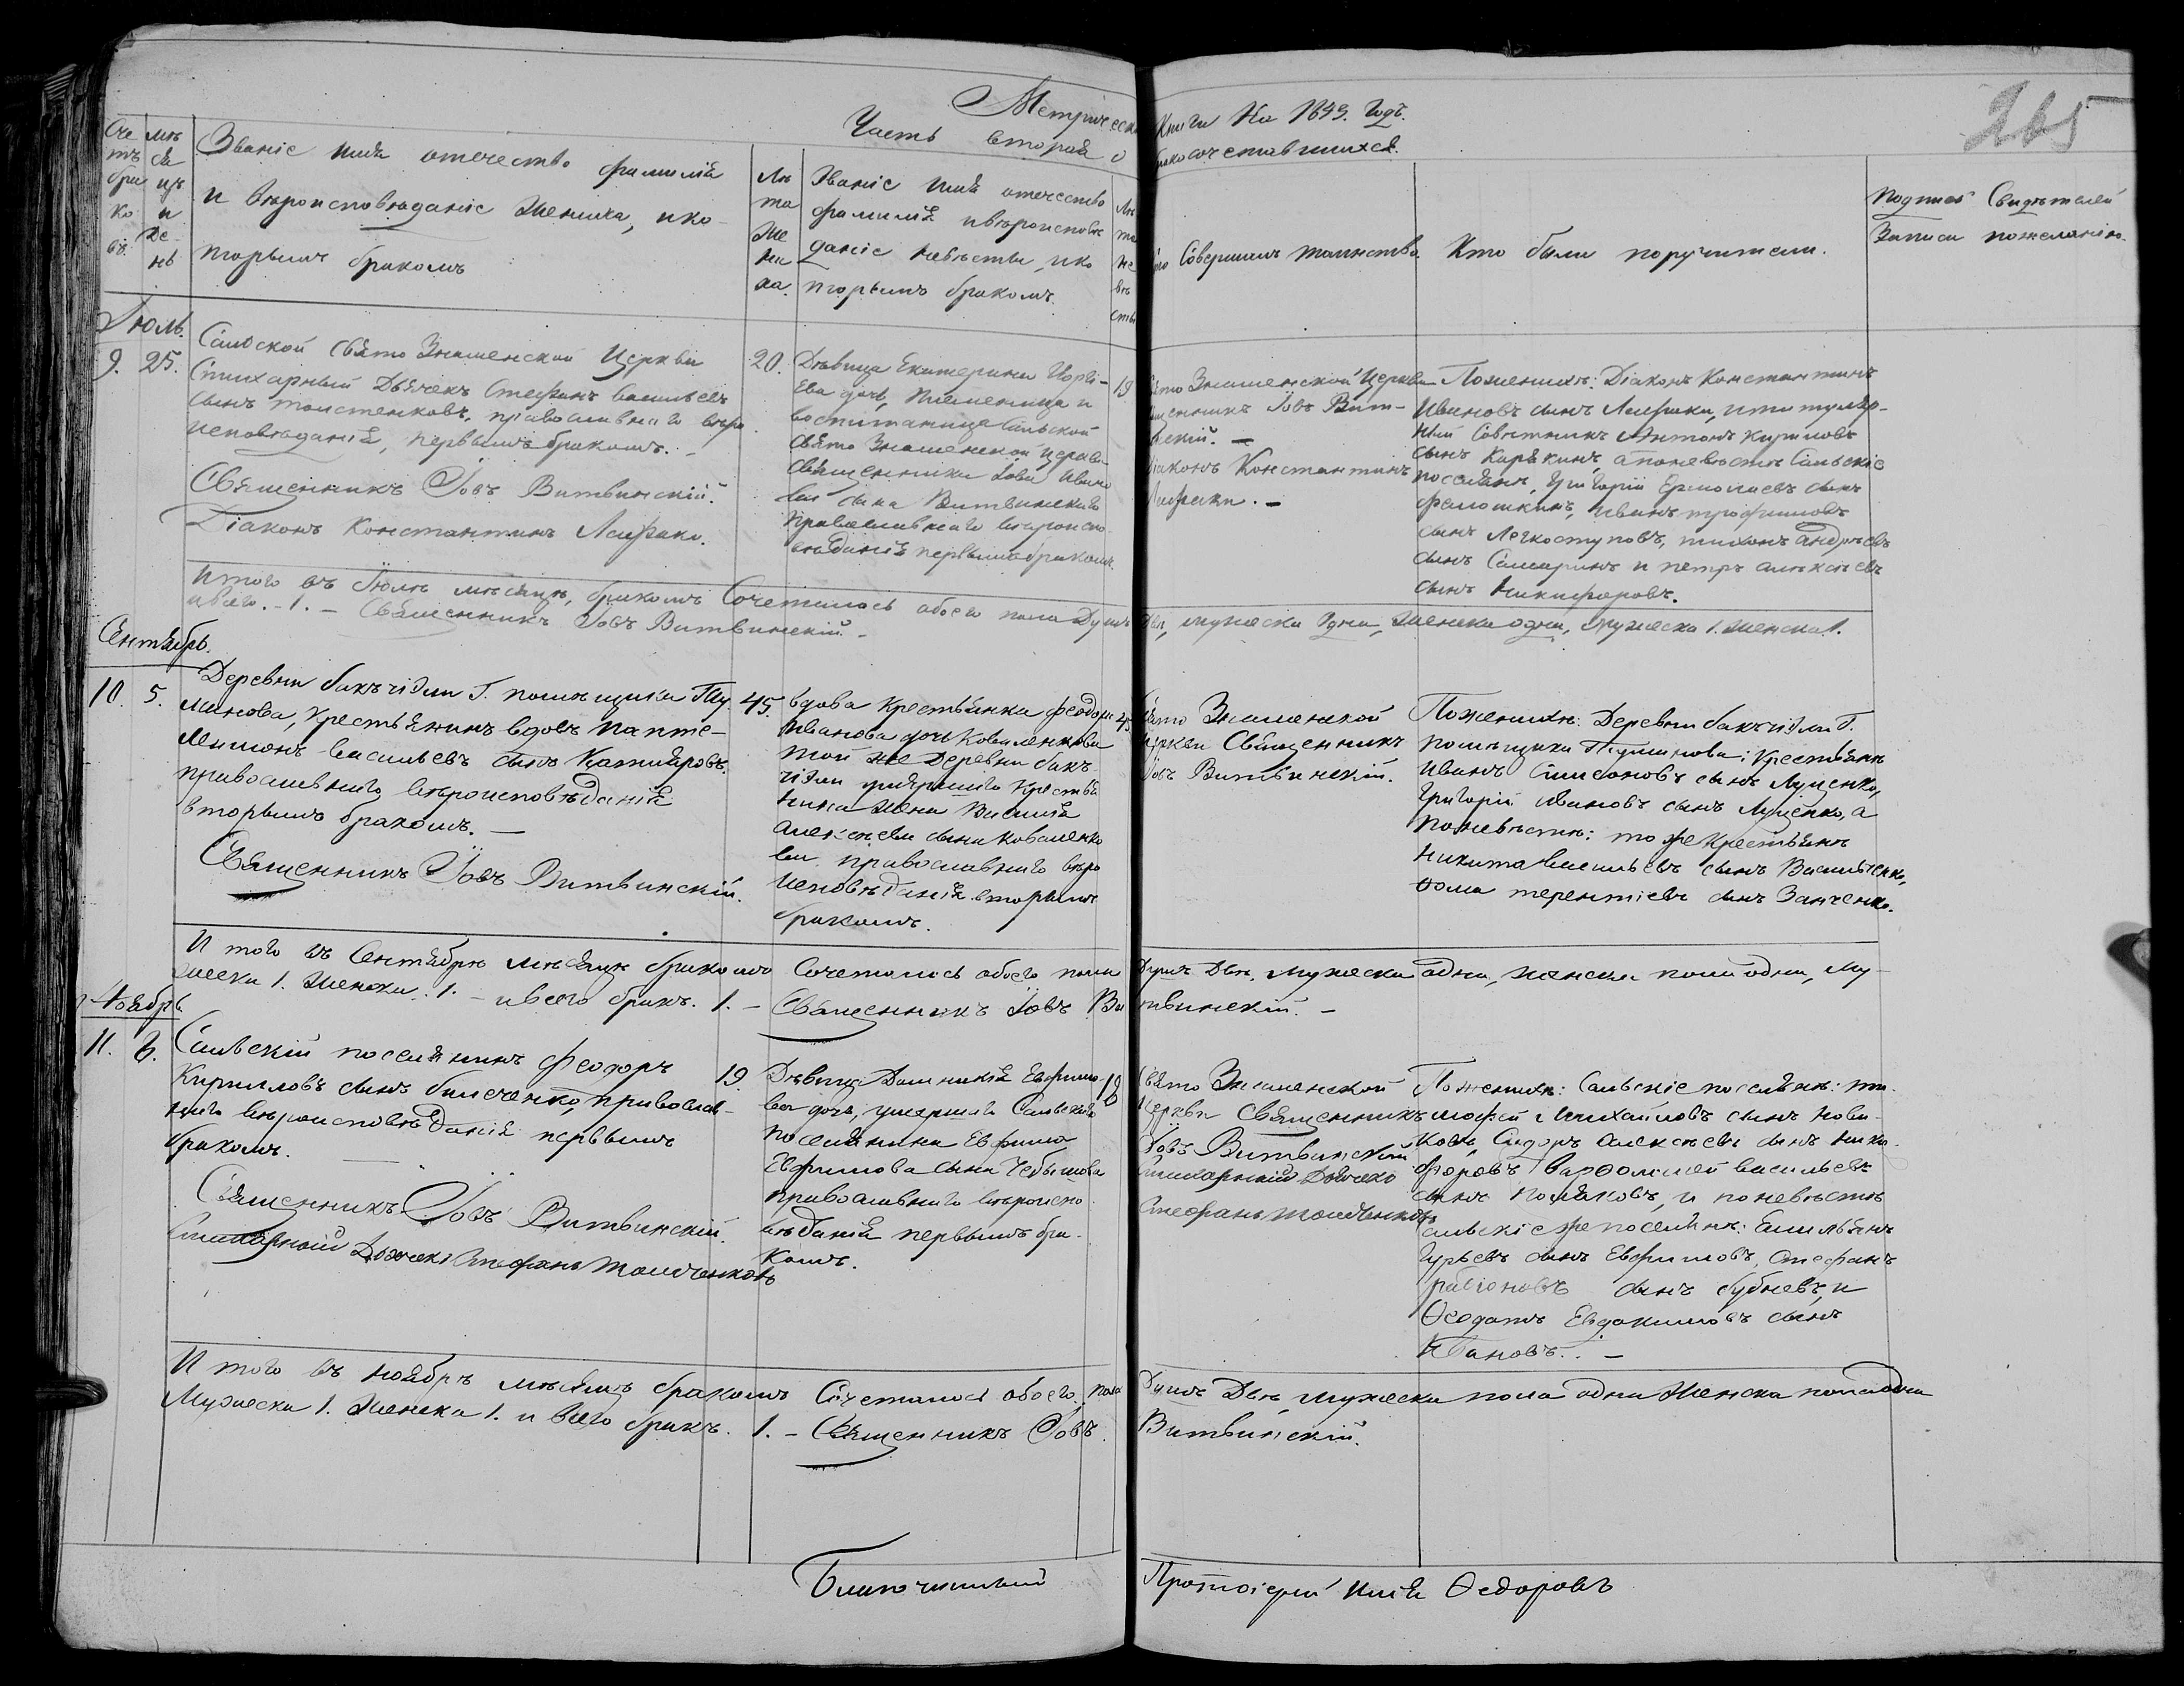 Метрическ Книги На 1849. Годъ.
265
Часть вторая о бракосочетавшихся.
Сче
тъ
бра
ко
въ.
Мѣ
ся
цъ
и
Де-
нь
Званіе имя отечество фамилія
и вѣроисповѣданіе жениха, и ко-
торымъ бракомъ
Лѣ
та
же
ни
ха.
Званіе имя отечество
фамилія и вѣроисповѣ
даніе невѣсты, и ко
торымъ бракомъ.
Лѣ
та
не
вѣ
сты
Кто Совершалъ таинство.
Кто были поручители.
Подписъ Свидѣтелей
Записи пожеланію.
Іюль.
9. 25.
Сальской Свято Знаменской Церкви
Стихарный Дьячекъ Стефанъ васильевъ
сынъ толстенковъ, православнаго вѣро
исповѣданія, первымъ бракомъ. -
Священникъ Іовъ Витвинскій.
Діаконъ Константинъ
20.
Дѣвица Екатерина
Ева дочь, племеница и
воспитаница Сальской
Свято Знаменской церкви
Священника Іова Ивано
ва сына Витвинскаго
православнаго вѣроиспо
вѣданія первымъ бракомъ.
19
Свято Знаменской Церкви
Священникъ Іовъ Вит-
винскій. -
Діаконъ Константинъ
По женихѣ: Діаконъ Константинъ
Ивановъ сынъ и титуляр-
ный Совѣтникъ Антонъ Кириловъ
сынъ Карякинъ, а по невѣстѣ Сальскіе
поселяне, Григорій Ермолаевъ сынъ
Иванъ трофимовъ
сынъ Легкоступовъ, тихонъ андрѣевъ
сынъ Самаринъ и петръ алексѣевъ
сынъ Никифоровъ.
Итого въ Іюлѣ мѣсяцѣ, бракомъ Сочеталось обоего пола Душъ двѣ, мужеска одна, женска одна, мужеска 1. женска 1.
и всего. - 1. - Священникъ Іовъ Витвинскій. -
Сентябрь.
10. 5.
Деревни бакъчіэли Г. помѣщика Ту
манова, Крестьянинъ вдовъ Панте-
леимонъ васильевъ сынъ
православнаго вѣроисповѣданія
вторымъ бракомъ. -
Священникъ Іовъ Витвинскій.
45.
вдова Крестьянка феодо
Иванова дочь Коваленкова
той же Деревни бакъ
чіэли умершаго Крестья
нина жена Василія
алексѣева сына Коваленко
ва православнаго вѣро
исповѣданія вторымъ
бракомъ.
45
Свято Знаменской
церкви Священникъ
Іовъ Витвинскій.
По женихѣ: Деревни бакъчіэли Г.
помѣщика Туманова: Крестьяне
Иванъ Симеоновъ сынъ Луценко,
Григорій Ивановъ сынъ Луценко, а
по невѣстѣ: то же Крестьяне
Никита васильевъ сынъ Василченко,
Фома терентіевъ сынъ Занченко.
И того въ Сентябрѣ мѣсяцѣ бракомъ Сочеталось обоего пола Душъ Двѣ, мужеска одна, женска пола одна, Му-
жеска 1. женска. 1. - и всего бракъ. 1. - Священникъ Іовъ Витвинскій. -
Ноябрь
11. 6.
Сальскій поселянинъ Феодоръ
Кирилловъ сынъ православ-
наго вѣроисповѣданія первымъ
бракомъ.
Священникъ Іовъ Витвинскій.
Стихарный Дьячекъ Стефанъ
19.
Дѣвица Доминикія Евфимо-
ва дочь, умершаго Сальскаго
поселянина Евфима
Евфимова сына Чебышова
православнаго вѣроиспо
вѣданія первымъ бра-
комъ.
18
Свято Знаменской
Церкви Священникъ
Іовъ Витвинскій
Стихарный Дьячекъ
Стефанъ
По женихѣ: Сальскіе поселяне: ти-
мофей Михайловъ сынъ Нови-
ковъ, Сидоръ алексѣевъ сынъ Ники-
форовъ Варфоломей васильевъ
сынъ Поляковъ, и по невѣстѣ
сальскіе же поселяне: Емельянъ
Гурьевъ сынъ Евфимовъ, Стефанъ
сынъ бубневъ, и
Ѳеодотъ Евдокимовъ сынъ
Пановъ. -
И того въ Ноябрѣ мѣсяцѣ бракомъ Сочеталось обоего пола Душъ Двѣ, мужеска пола одна женска пола одна
Мужеска 1. женска 1. и всего бракъ. 1. - Священникъ Іовъ Витвинскій.
Благочинный Протоіерей Илія Ѳедоровъ